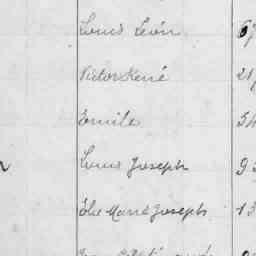 Louis Léon 67
Victor René 21
Emile 54
Louis Joseph 9
Elie Marie Joseph 13